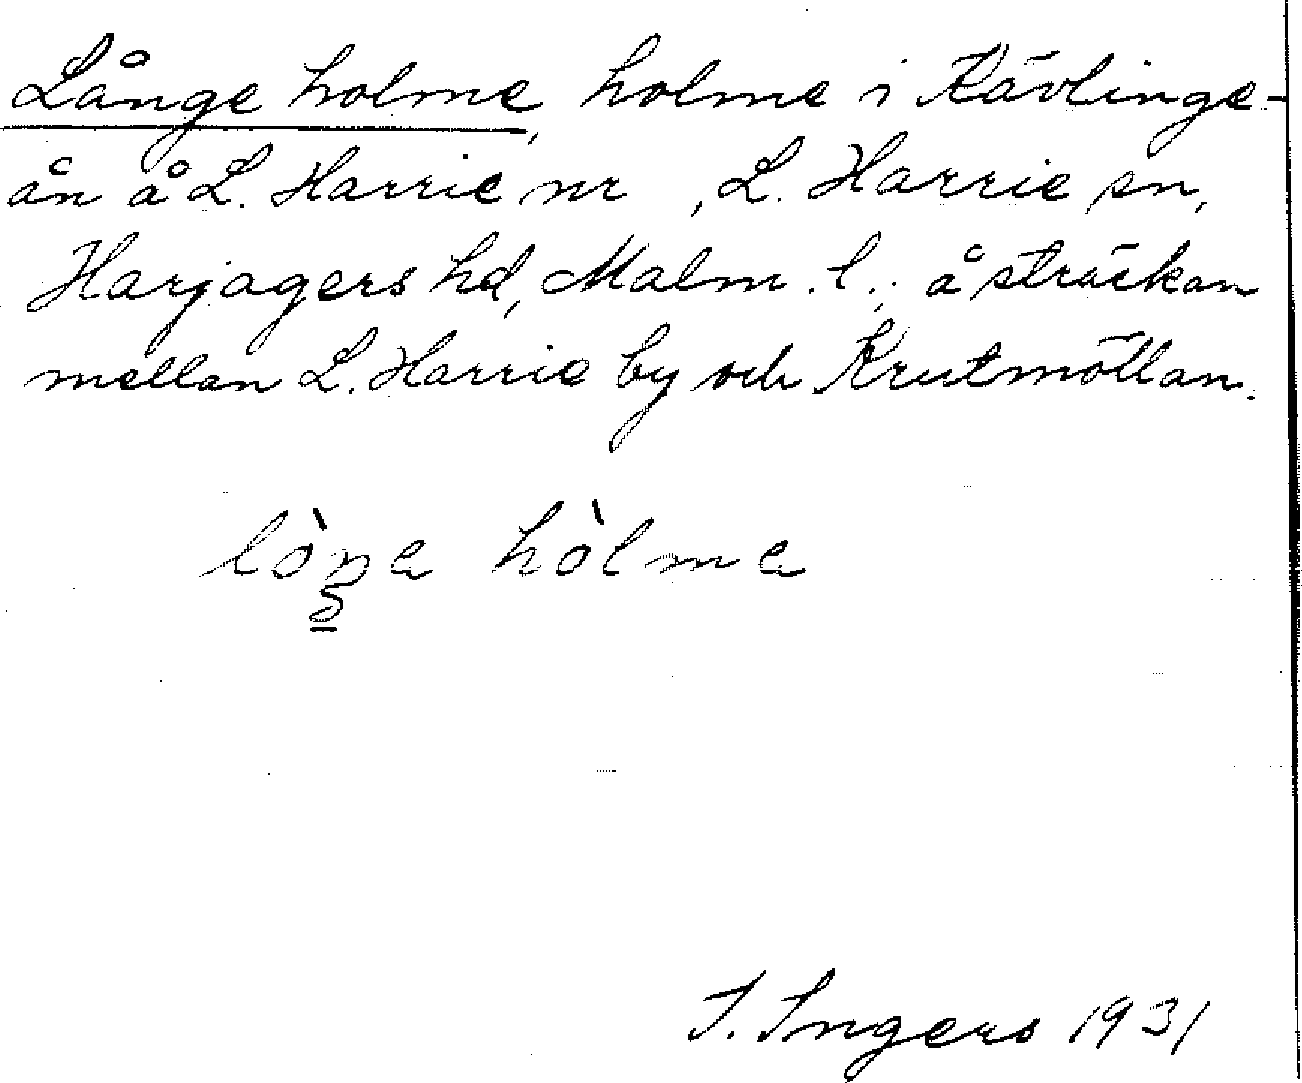 Långe holme, holme i Kävlinge-
ån å L. Harrie nr , L. Harrie sn,
Harjagers hd, Malm. l.; å sträckan
mellan L. Harrie by och Krutmöllan.
hòlma
I. Ingers 1931